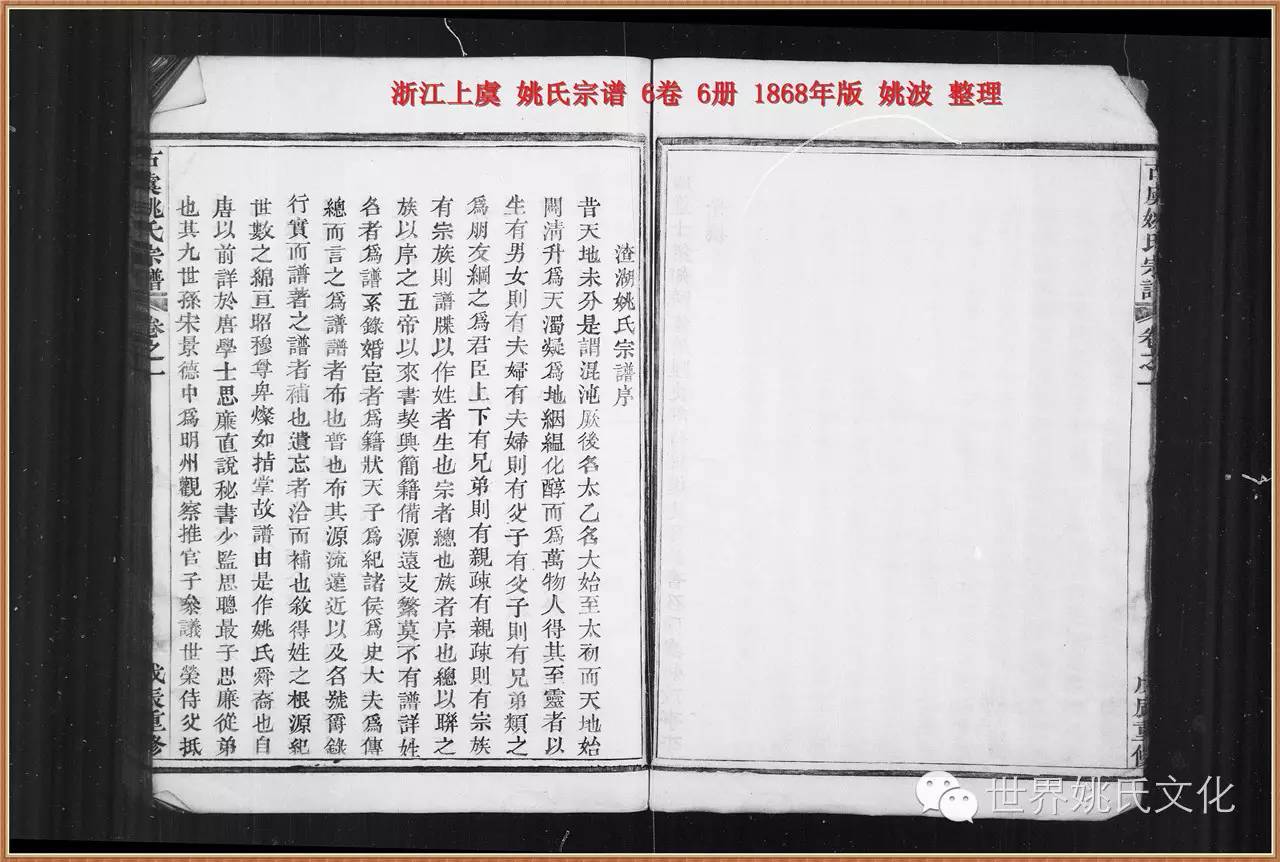 浙江上虞 姚氏宗谱 6卷 6册 1868年版 姚波 整理
古虞姚氏宗譜
卷之一
戊辰重修
渣湖姚氏宗譜序
昔天地未分是謂混沌厥後名太乙名大始至太初而天地始
闢清升爲天濁凝爲地絪緼化醇而爲萬物人得其至靈者以
生有男女則有夫婦有夫婦則有父子有父子則有兄弟類之
爲朋友綱之爲君臣上下有兄弟則有親疎有親疎則有宗族
有宗族則譜牒以作姓者生也宗者總也族者序也總以聯之
族以序之五帝以來書契興簡籍備源遠支繁莫不有譜詳姓
名者爲譜系錄婚宦者爲籍狀天子爲紀諸侯爲史大夫爲傳
總而言之爲譜譜者布也普也布其源流遠近以及名號爵錄
行實而譜著之譜者補也遺忘者洽而補也敘得姓之根源紀
世數之綿亘昭穆尊卑燦如指掌故譜由是作姚氏舜裔也自
唐以前詳於唐學士思廉直說秘書少監思聰最子思廉從弟
也其九世孫宋景德中爲明州觀察推官子叅議世榮侍父抵
古虞姚氏宗譜
卷之一
戊辰重修
世界姚氏文化